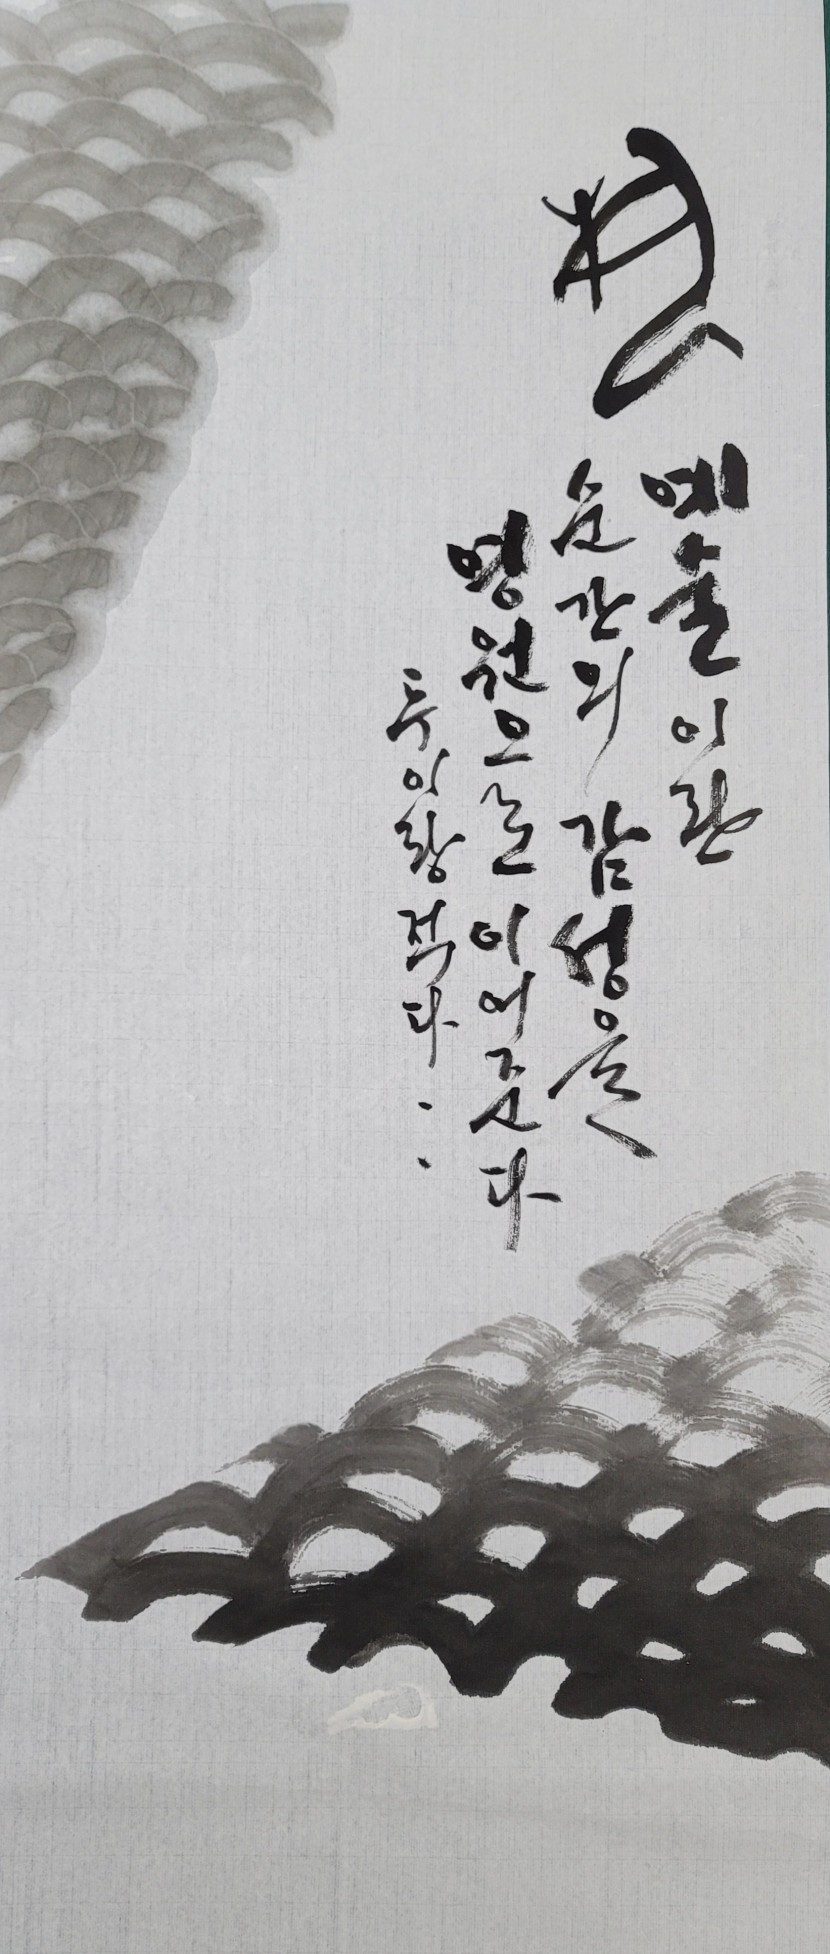 예술이란
순간의 감성을
영원으로 이어준다
적다..